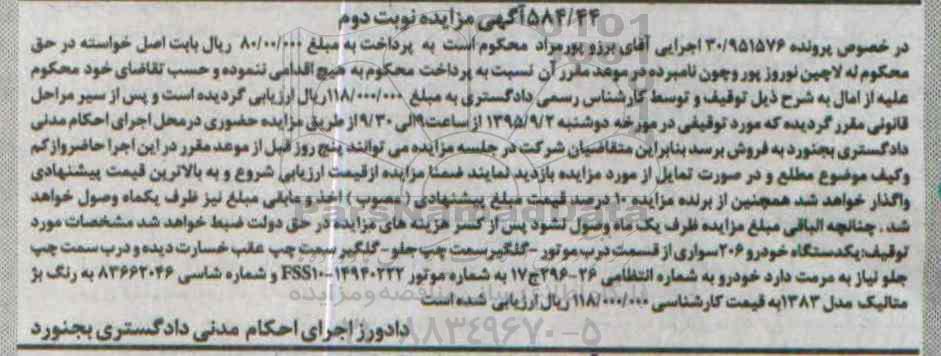 ۵۸۴/۴۴ آگهی مزایده نوبت دوم
در خصوص پرونده ۳۰/۹۵۱۵۷۶ اجرایی آقای برزو پورمراد محکوم است به پرداخت به مبلغ ۸۰/۰۰/۰۰۰ ریال بابت اصل خواسته در حق
محکوم له لاچین نوروز پور وچون نامبرده در موعد مقرر آن نسبت به پرداخت محکوم به هیچ اقدامی ننموده و حسب تقاضای خود محکوم
علیه از امال به شرح ذیل توقیف و توسط کارشناس رسمی دادگستری به مبلغ ۱۱۸/۰۰۰/۰۰۰ریال ارزیابی گردیده است و پس از سیر مراحل
قانونی مقرر گردیده که مورد توقیفی در مورخه دوشنبه ۱۳۹۵/۹/۲ از ساعت۹الی ۹/۳۰ از طریق مزایده حضوری درمحل اجرای احکام مدنی
دادگستری بجنورد به فروش برسد بنابراین متقاضیان شرکت در جلسه مزایده می توانند پنج روز قبل از موعد مقرر در این اجرا حاضرواز کم
وکیف موضوع مطلع و در صورت تمایل از مورد مزایده بازدید نمایند ضمنا مزایده ازقیمت ارزیابی شروع و به بالاترین قیمت پیشنهادی
واگذار خواهد شد همچنین از برنده مزایده ۱۰ درصد قیمت مبلغ پیشنهادی ( مصوب ) اخذ و مابقی مبلغ نیز ظرف یکماه وصول خواهد
شد . چنانچه الباقی مبلغ مزایده ظرف یک ماه وصول نشود پس از کسر هزینه های مزایده در حق دولت ضبط خواهد شد مشخصات مورد
توقیف:یکدستگاه خودرو ۲۰۶سواری از قسمت درب موتور -گلگیرسمت چپ جلو-گلگیرسمت چپ عقب خسارت دیده و درب سمت چپ
جلو نیاز به مرمت دارد خودرو به شماره انتظامی ۲۶-۲۹۶ج۱۷ به شماره موتور FSS۱۰-۱۴۹۴۰۲۲۲ و شماره شاسی ۸۳۶۶۲۰۴۶ به رنگ بژ
متالیک مدل ۱۳۸۳به قیمت کارشناسی ۱۱۸/۰۰۰/۰۰۰ ریال ارزیابی شده است
دادورز اجرای احکام مدنی دادگستری بجنورد
ParsNamadData
۸۸۳۴۹۶۷۰-۵